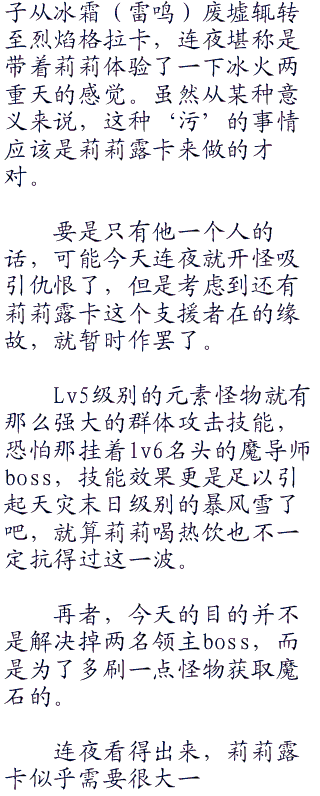 子从冰霜（雷鸣）废墟辄转
至烈焰格拉卡，连夜堪称是
带着莉莉体验了一下冰火两
重天的感觉。虽然从某种意
义来说，这种‘污’的事情
应该是莉莉露卡来做的才
对。
要是只有他一个人的
话，可能今天连夜就开怪吸
引仇恨了，但是考虑到还有
莉莉露卡这个支援者在的缘
故，就暂时作罢了。
Lv5级别的元素怪物就有
那么强大的群体攻击技能，
恐怕那挂着lv6名头的魔导师
boss，技能效果更是足以引
起天灾末日级别的暴风雪了
吧，就算莉莉喝热饮也不一
定抗得过这一波。
再者，今天的目的并不
是解决掉两名领主boss，而
是为了多刷一点怪物获取魔
石的。
连夜看得出来，莉莉露
卡似乎需要很大一